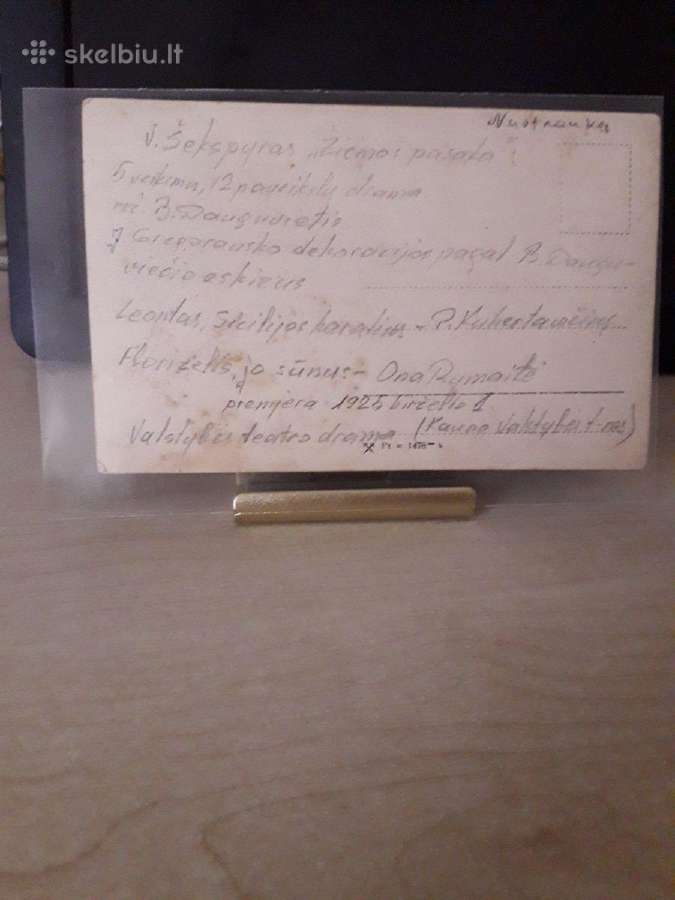 skelbiu.lt
Nuotrauka
V. Šekspyras „Žiemos pasaka"
5 veiksmų, 12 paveikslų drama
B. Dauguvietis
dekoracijos pagal B. Daugu-
viečio eskizus
Leontas, Sicilijos karalius - P. Kubertavičius
Florizelis, jo sūnus - Ona Rymaitė
premjera 1925 birželio 1
Valstybės teatro drama (Kauno Valstybės t-ras)